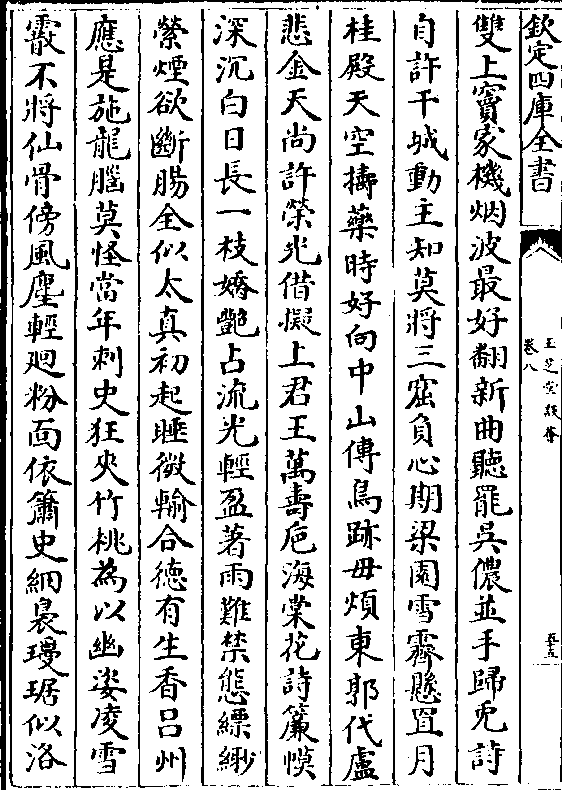 欽定四庫全書
玉芝堂談薈
卷八
五十五
雙上竇家機烟波最好翻新曲聽罷吳儂並手歸兎詩
自許干城動主知莫將三窟負心期梁園雪霽懸罝月
桂殿天空擣藥時好向中山傳鳥跡毋煩東郭代盧
悲金天尚許榮光借擬上君王萬壽巵海棠花詩簾幙
深沉白日長一枝嬌艶占流光輕盈著雨難禁態縹緲
縈煙欲斷腸全似太真初起睡微輸合德有生香吕州
應是施龍腦莫怪當年刺史狂夾竹桃為以幽姿凌雪
霰不將仙骨傍風塵輕廻粉面依簫史細裊瓊琚似洛